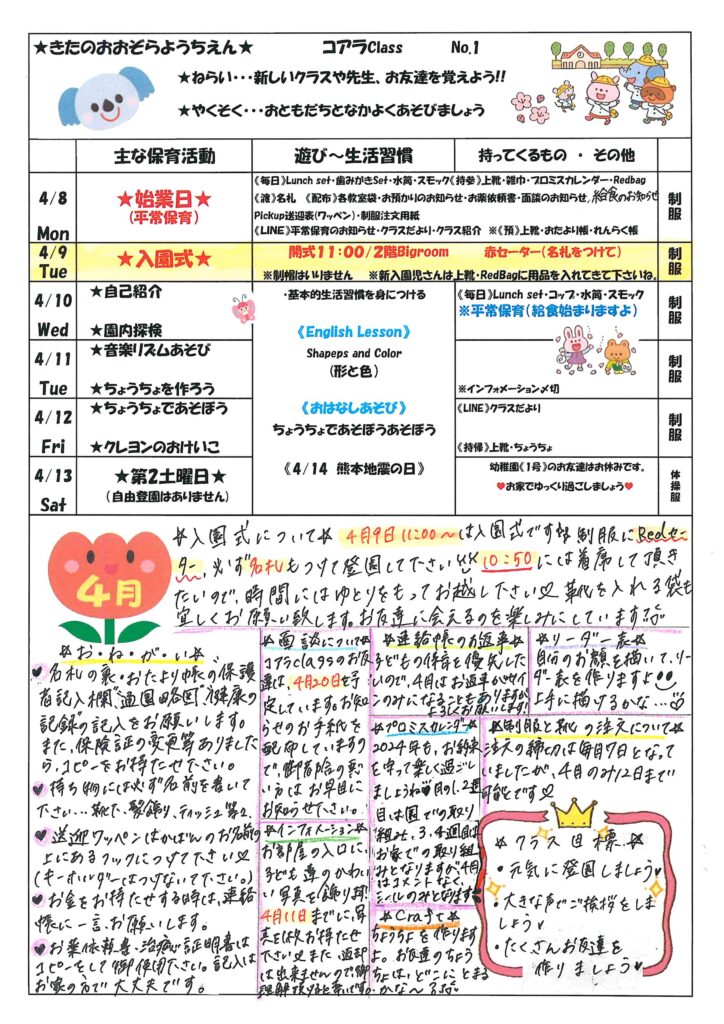 ★きたのおおぞらようちえん★ コアラClass No.1
★ねらい・・・新しいクラスや先生、お友達を覚えよう!!
★やくそく・・・おともだちとなかよくあそびましょう
主な保育活動 遊び～生活習慣 持ってくるもの ・ その他
4/8
Mon
★始業日★
(平常保育)
《毎日》Lunch set・歯みがきSet・水筒・スモック《持参》上靴・雑巾・プロミスカレンダー・Redbag
《渡》名札 《配布》各教室袋・お預かりのお知らせ・お薬依頼書・面談のお知らせ,給食のお知らせ
Pickup送迎表(ワッペン)・制服注文用紙
《LINE》平常保育のお知らせ・クラスだより・クラス紹介 ※《預》上靴・おたより帳・れんらく帳
制服
4/9
Tue
★入園式★
開式11:00/2階Bigroom 赤セーター(名札をつけて)
※制帽はいりません ※新入園児さんは上靴・RedBagに用品を入れてきて下さいね。
制服
4/10
Wed
★自己紹介
★園内探検
・基本的生活習慣を身につける
《毎日》Lunch set・コップ・水筒・スモック
※平常保育(給食始まりますよ)
制服
《English Lesson》
Shapeps and Color
(形と色)
4/11
Tue
★音楽リズムあそび
★ちょうちょを作ろう
※インフォメーション〆切
制服
4/12
Fri
★ちょうちょであそぼう
★クレヨンのおけいこ
《おはなしあそび》
ちょうちょであそぼうあそぼう
《LINE》クラスだより
《持帰》上靴・ちょうちょ
制服
4/13
Sat
★第2土曜日★
(自由登園はありません)
《4/14 熊本地震の日》
幼稚園《1号》のお友達はお休みです。
♥お家でゆっくり過ごしましょう♥
体操服
4月
☆入園式について☆ 4月9日11:00～は入園式です 制服にRedセー
ター,必ず名札もつけて登園して下さい 10:50には着席して頂き
たいので、時間にはゆとりをもってお越し下さい♡ 靴を入れる袋も
宜しくお願い致します。お友達に会えるのを楽しみにしています
☆お・ね・が・い☆
♥名札の裏・おたより帳の保護
者記入欄"通園略図""健康の
記録"の記入をお願いします。
また、保険証の変更等ありました
ら、コピーをお持たせ下さい。
♥持ち物には必ず名前を書いて
下さい... 靴下、髪飾り、ティッシュ等々
♥送迎ワッペンはかばんのお名前の
上にあるフックにつけて下さい♡
(キーホルダーはつけないで下さい。)
♥お金をお持たせする時は、連絡
帳に一言、お願いします。
♥お薬依頼書、治癒証明書は
コピーをして御使用下さい。記入は
お家の方で大丈夫です。
☆面談について☆
コアラclassのお友
達は、4月20日を予
定しています。お知
らせのお手紙を
配布していますの
で、御都合の悪い
方はお早目に
お知らせ下さい。
☆インフォメーション☆
お部屋の入口に、
子ども達のかわい
い写真を飾ります
4月11日までに、写
真を1枚お持たせ
下さい♡また、返却
は出来ませんので、御
理解頂けると幸いです。
☆連絡帳のお返事☆
子どもの保育を優先した
いので、4月はお返事がサイ
ンのみになることもありますが
よろしくお願いします!
☆プロミスカレンダー☆
2024年も、お約束
を守って楽しく過ごし
ましょうね 1.2週
目は園での取り
組み、3.4週目は
お家での取り組
みとなりますが、4月
はコメントなく、
シールのみとなります
☆Craft☆
ちょうちょを作ります
よ。お友達のちょう
ちょは、どこにとまる
かな～
☆リーダー表☆
自分のお顔を描いて、リー
ダー表を作りますよ
上手に描けるかな…♡
☆制服と靴の注文について☆
注文の締切は毎月7日となって
いましたが、4月のみ12日まで
可能です♡
☆クラス目標☆
・元気に登園しましょう♥
・大きな声でご挨拶をしま
しょう♥
・たくさんお友達を
作りましょう♥